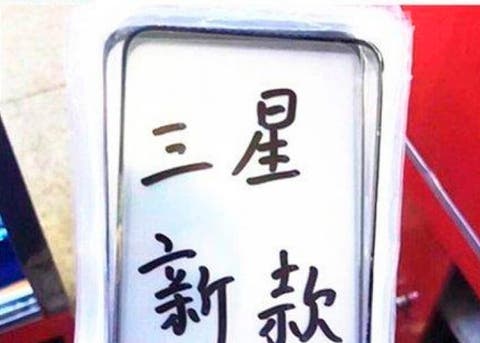 三星
新款